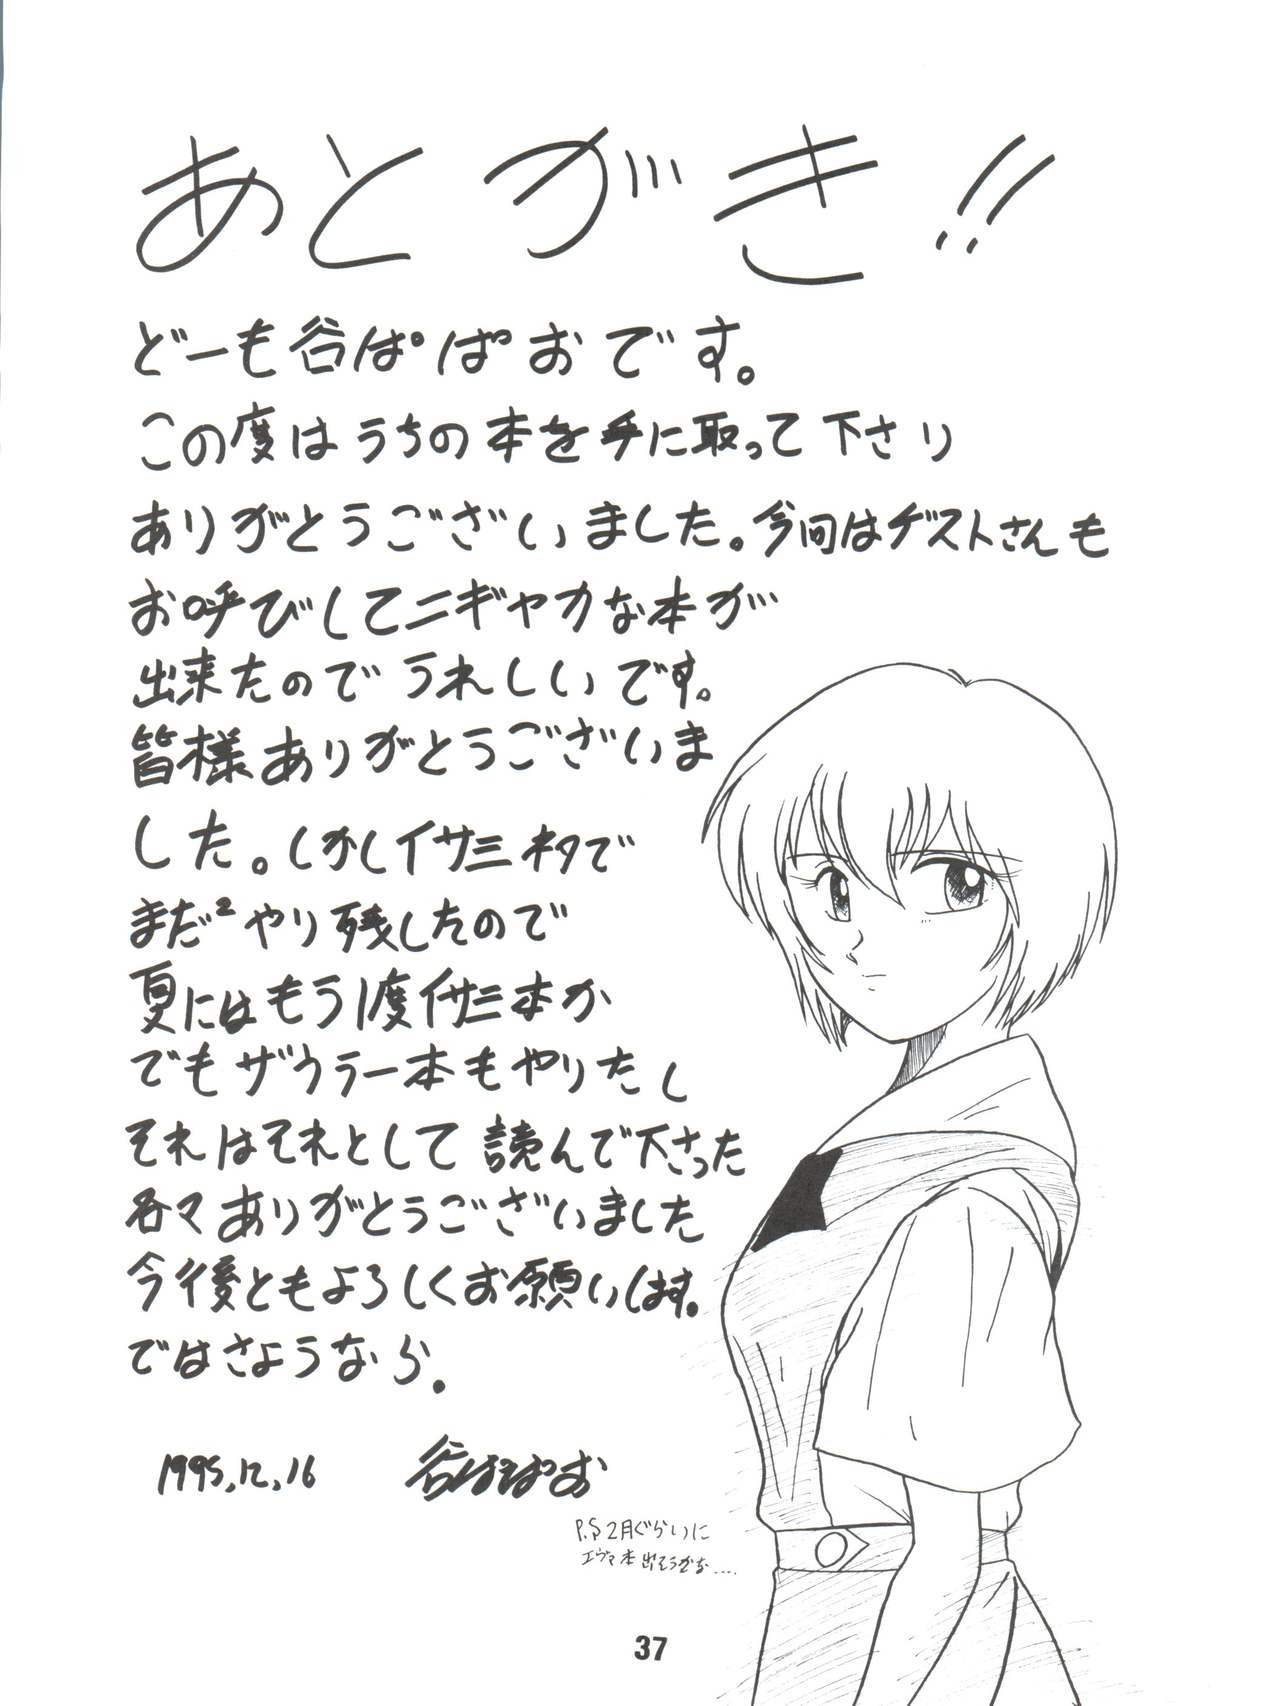 あとがき!!
どーも谷ぱぱおです。
この度はうちの本を手に取って下さり
ありがとうございました。今回はゲストさんも
お呼びしてニギヤカな本が
出来たのでうれしいです。
皆様ありがとうございま
した。しかしイサミネタで
まだ²やり残したので
夏にはもう1度イサミ本か
でもザウラー本もやりたし
それはそれとして読んで下さった
各々ありがとうございました
今後ともよろしくお願いします。
ではさようなら.
1995,12,16 谷ぱぱお
P.S 2月ぐらいに
エヴァ本出そうかな....
37